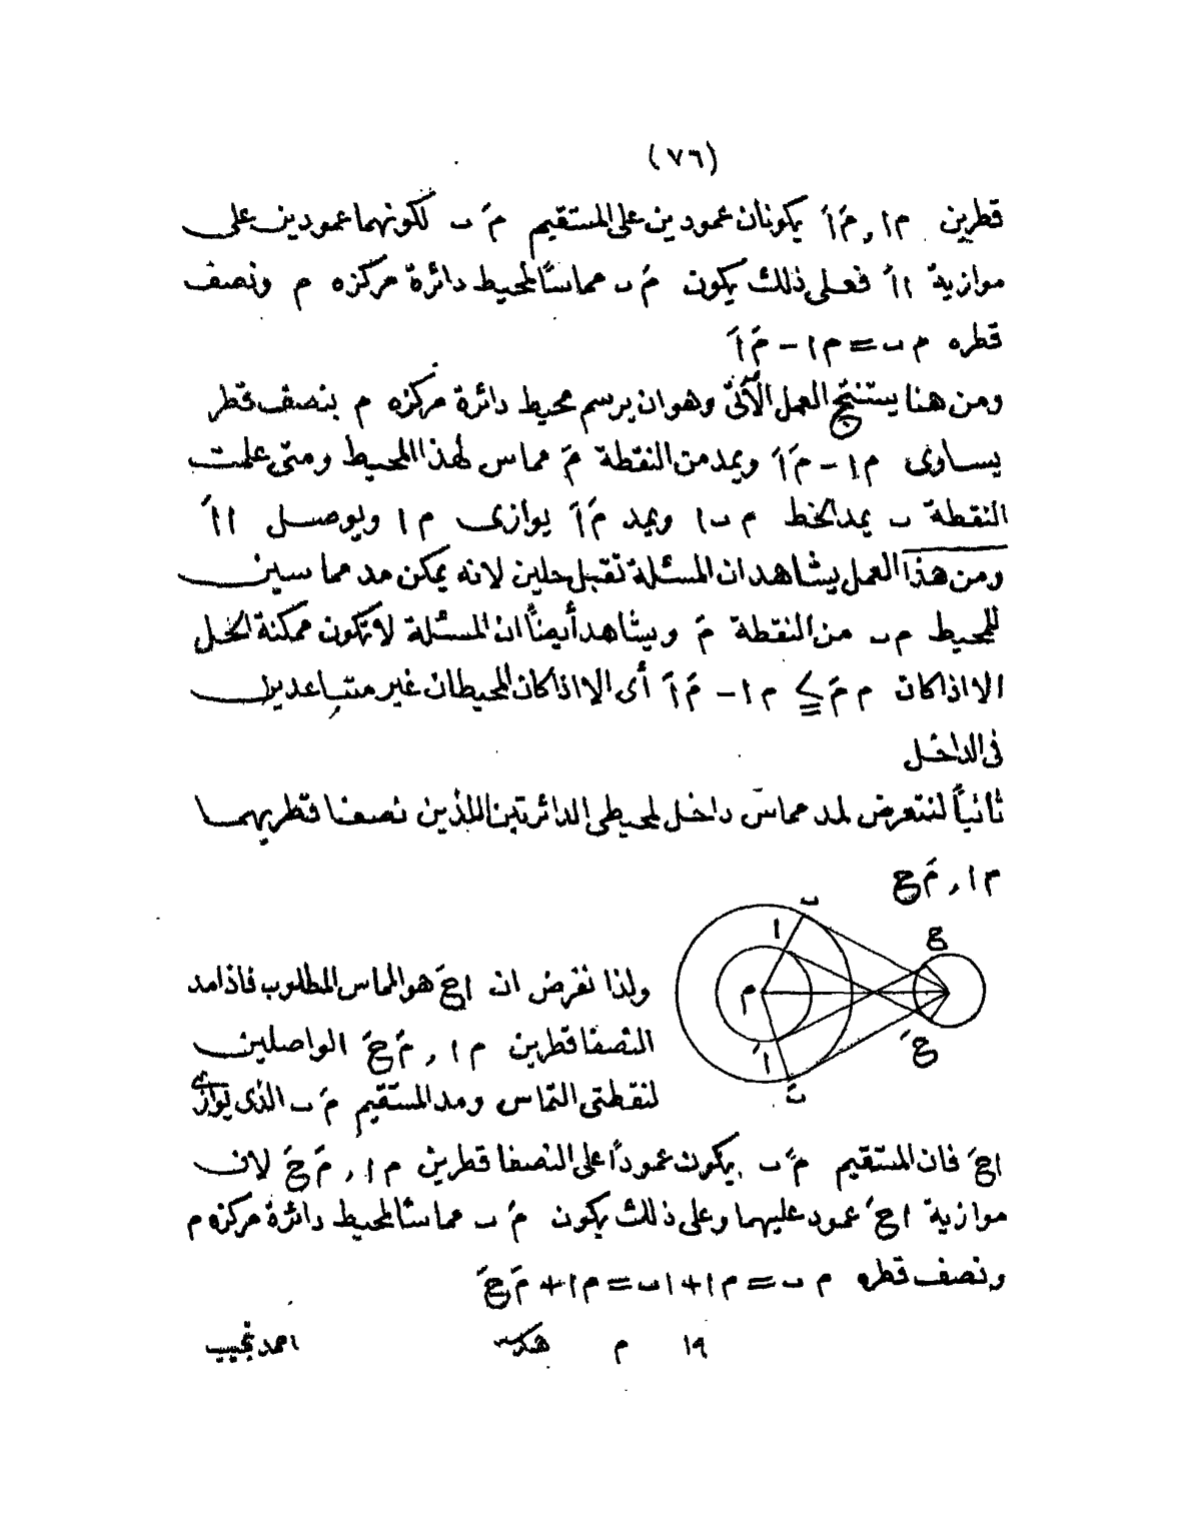 (٧٦)
قطرين م ا , مَ اَ يكونان عمودين على المستقيم مَ ب لكونهما عمودين على
موازية ا اَ فعلى ذلك يكون مَ ب مماسًا لمحيط دائرة مركزه م ونصف
قطره م ب = م ا - مَ اَ
ومن هنا يستنتج العمل الآتى وهو ان يرسم محيط دائرة مركزه م بنصف قطر
يساوى م ا - مَ اَ ويمد من النقطة مَ مماس لهذا المحيط ومتى علمت
النقطة ب يمد الخط م ب ا ويمد مَ اَ يوازى م ا ويوصل ا اَ
ومن هذا العمل يشاهد ان المسئلة تقبل حلين لانه يمكن مد مماسين
للمحيط م ب من النقطة مَ ويشاهد أيضًا ان المسئلة لا تكون ممكنة الحل
الا اذا كان م مَ ≥ م ا - مَ اَ أى الا اذا كان المحيطان غير متباعدين
فى الداخل
ثانيًا لنتعرض لمد مماس داخل لمحيطى الدائرتين اللذين نصفا قطريهما
م ا , مَ ج
ب
ا
ج
م
جَ
اَ
بَ
ولذا نفرض ان ا جَ هو المماس المطلوب فاذا مد
النصفا قطرين م ا , مَ جَ الواصلين
لنقطتى التماس ومد المستقيم مَ ب الذى يوازى
ا جَ فان المستقيم مَ ب يكون عمودًا على النصفا قطرين م ا , مَ جَ لان
موازية ا جَ عمود عليهما وعلى ذلك يكون مَ ب مماسًا لمحيط دائرة مركزه م
ونصف قطره م ب = م ا + ا ب = م ا + مَ جَ
١٩ م هند احمد نجيب